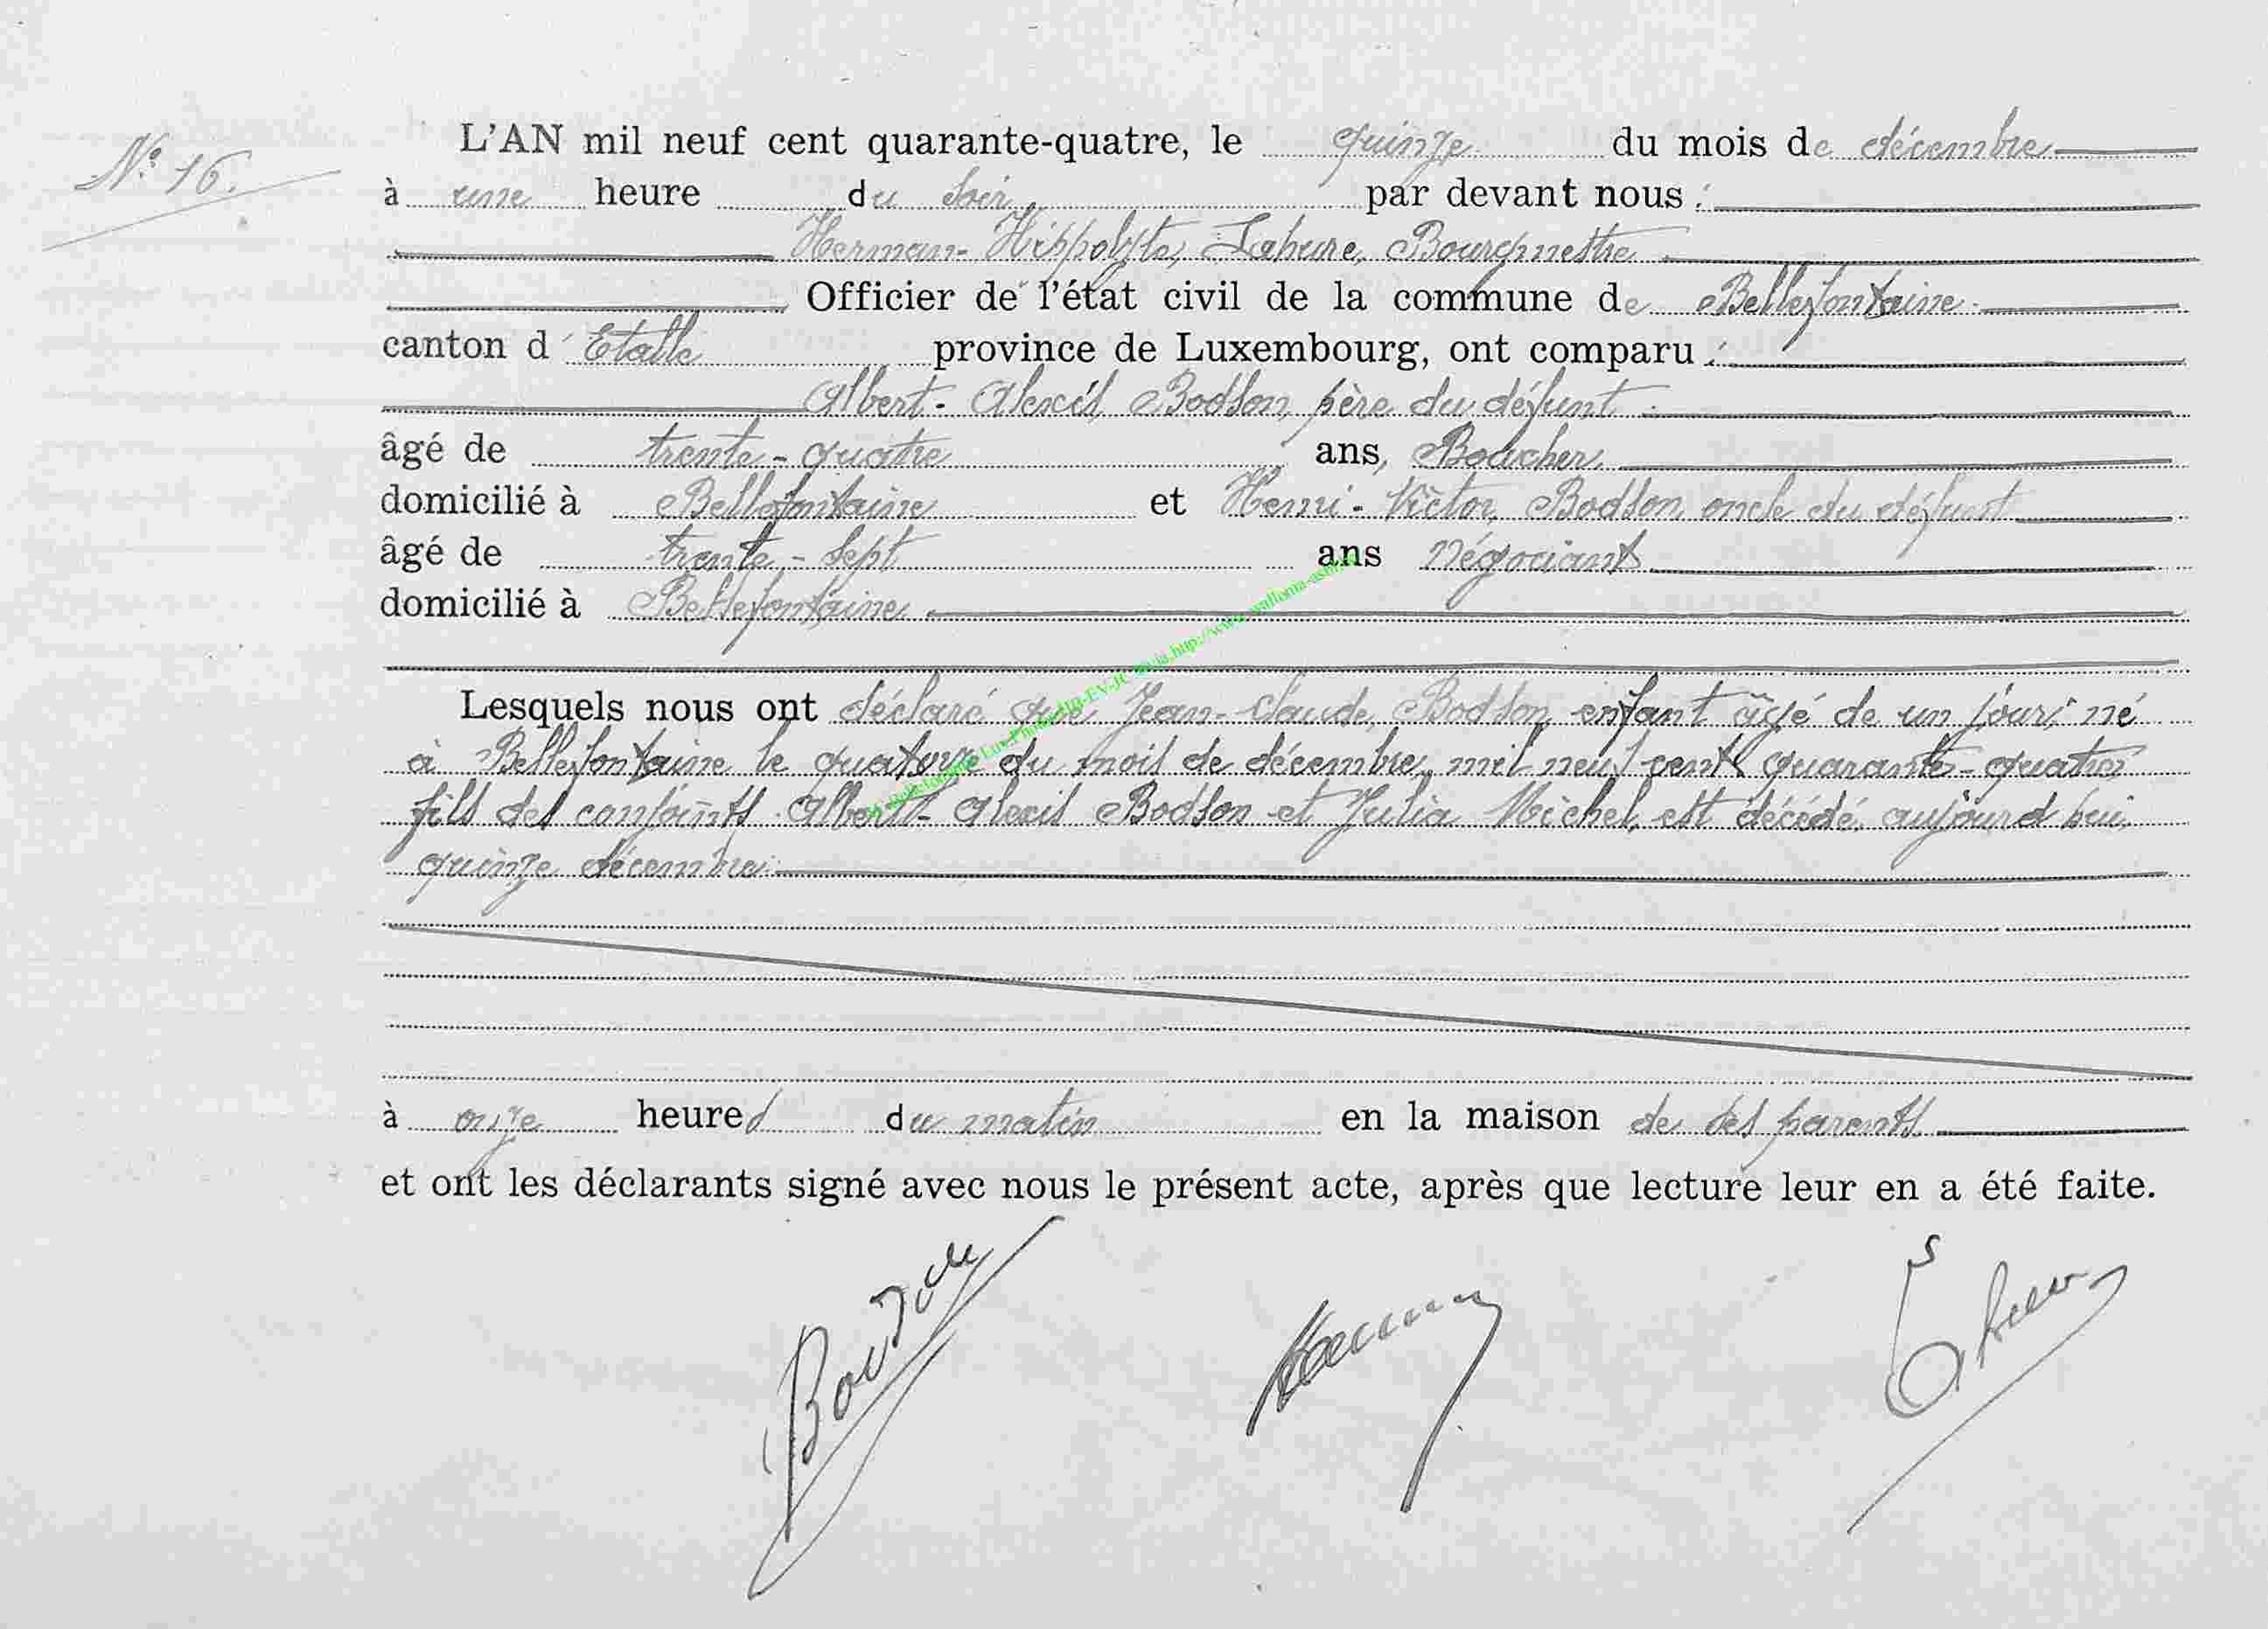 N° 16.
L'AN mil neuf cent quarante-quatre, le quinze du mois de décembre
à une heure du soir par devant nous :
Herman-Hippolyte, Lahure, Bourgmestre
Officier de l'état civil de la commune de Bellefontaine
canton d'Etalle province de Luxembourg, ont comparu :
Albert-Alexis Bodson, père du défunt
âgé de trente-quatre ans, Boucher,
domicilié à Bellefontaine et Henri-Victor, Bodson, oncle du défunt
âgé de trente-sept ans négociant
domicilié à Bellefontaine
Lesquels nous ont déclaré que Jean-Claude, Bodson, enfant âgé de un jour, né
à Bellefontaine le quatorze du mois de décembre, mil neuf cent quarante-quatre,
fils des conjoints Albert-Alexis Bodson et Julia Michel, est décédé, aujourd'hui
quinze décembre
à onze heures du matin en la maison de ses parents
et ont les déclarants signé avec nous le présent acte, après que lecture leur en a été faite.